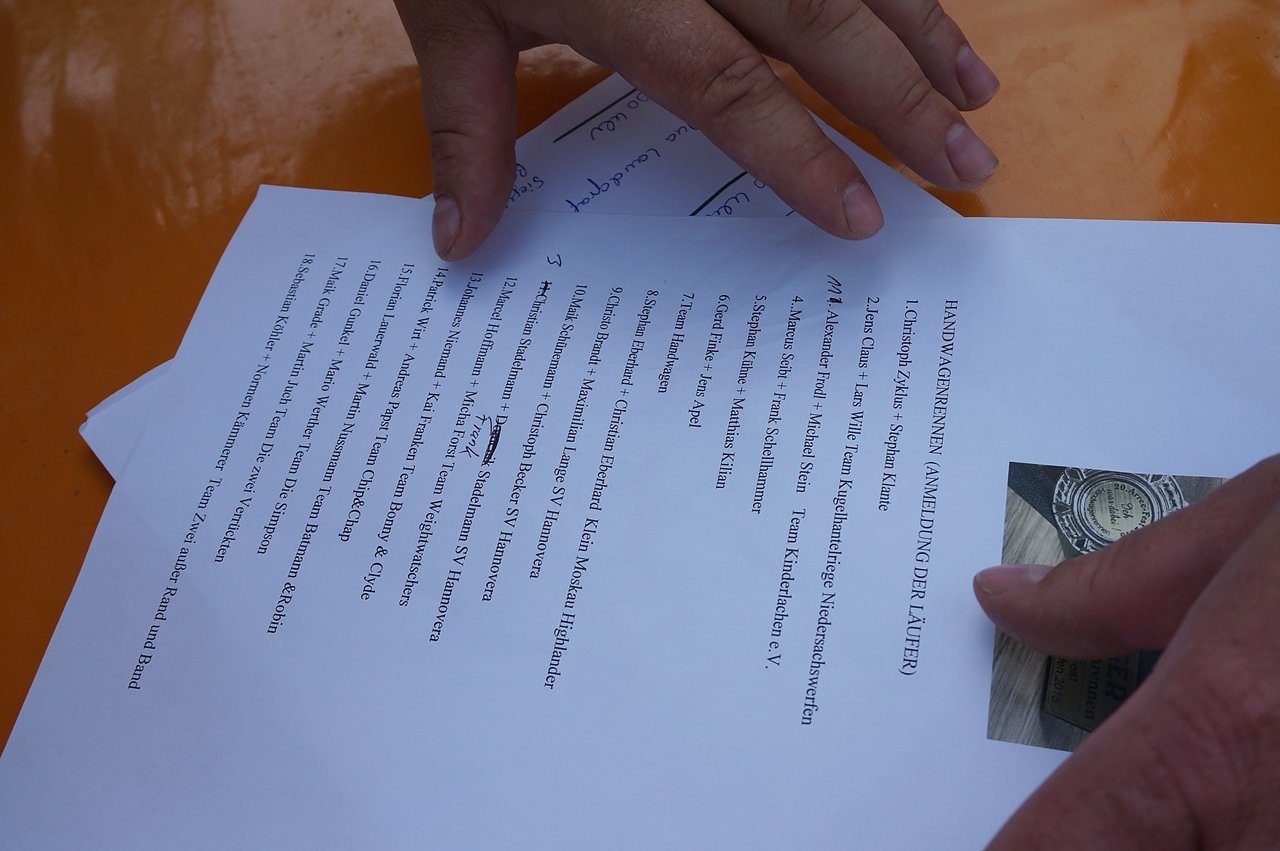 HANDWAGENRENNEN (ANMELDUNG DER LÄUFER)
1.Christoph Zyklus + Stephan Klante
2.Jens Claus + Lars Wille Team Kugelhantelriege Niedersachswerfen
Alexander Frodl + Michael Stein Team Kinderlachen e.V.
4.Marcus Seibt + Frank Schellhammer
5.Stephan Kühne + Matthias Kilian
6.Gerd Finke + Jens Apel
7.Team Handwagen
8.Stephan Eberhard + Christian Eberhard Klein Moskau Highlander
9.Christo Brandt + Maximilian Lange SV Hannovera
10.Maik Schünemann + Christoph Becker SV Hannovera
3 Christian Stadelmann + Frank Stadelmann SV Hannovera
12.Marcel Hoffmann + Micha Forst Team Weightwatschers
13.Johannes Niemand + Kai Franken Team Bonny & Clyde
14.Patrick Wirt + Andreas Papst Team Chip&Chap
15.Florian Lauerwald + Martin Nussmann Team Batmann &Robin
16.Daniel Gunkel + Mario Werther Team Die Simpson
17.Maik Grade + Martin Juch Team Die zwei Verrückten
18.Sebastian Köhler + Normen Kämmerer Team Zwei außer Rand und Band
Ich
dabei!
rennen
2015